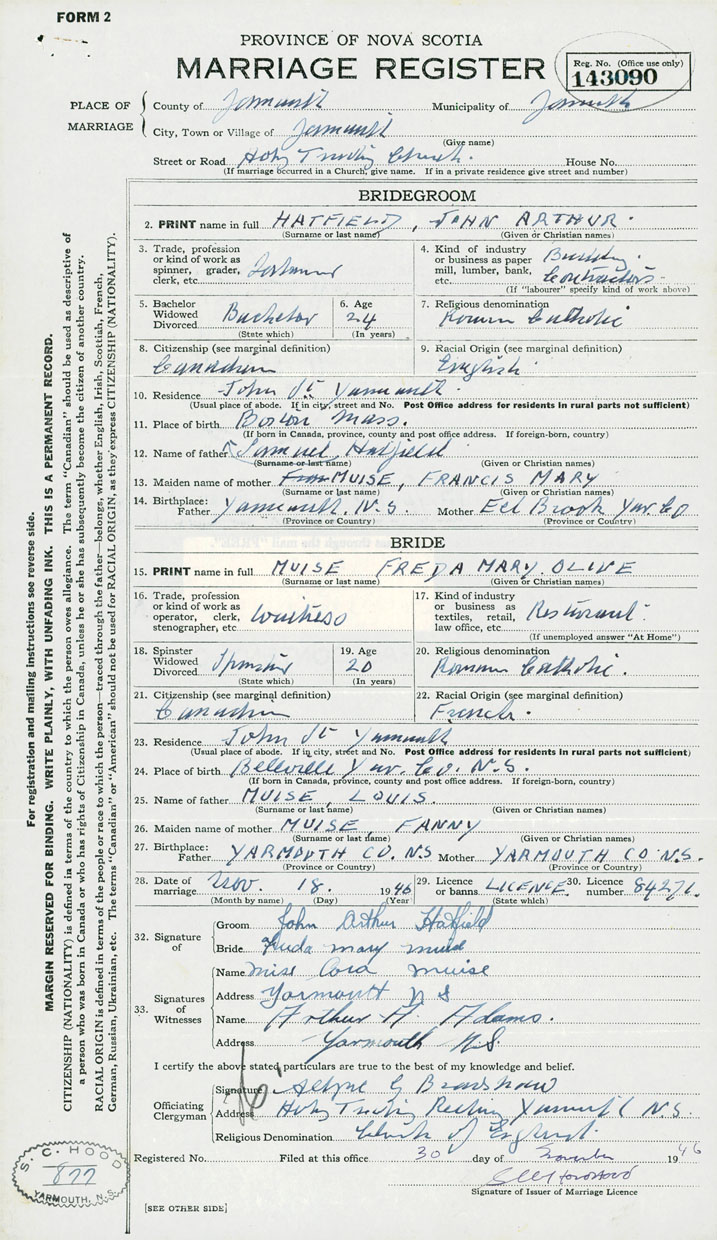 FORM 2
PROVINCE OF NOVA SCOTIA
MARRIAGE REGISTER
Reg. No. (Office use only)
143090
PLACE OF MARRIAGE
County of Yarmouth Municipality of Yarmouth
City, Town or Village of Yarmouth
(Give name)
Street or Road Holy Trinity Church. House No.
(If marriage occurred in a Church, give name. If in a private residence give street and number)
BRIDEGROOM
2. PRINT name in full HATFIELD, JOHN ARTHUR.
(Surname or last name) (Given or Christian names)
3. Trade, profession or kind of work as spinner, grader, clerk, etc.
4. Kind of industry or business as paper mill, lumber, bank, etc. Building Contractors
(If "labourer" specify kind of work above)
5. Bachelor Widowed Divorced Bachelor
(State which)
6. Age 24
(In years)
7. Religious denomination Roman Catholic
8. Citizenship (see marginal definition) Canadian
9. Racial Origin (see marginal definition) English
10. Residence John St Yarmouth.
(Usual place of abode. If in city, street and No. Post Office address for residents in rural parts not sufficient)
11. Place of birth Boston Mass.
(If born in Canada, province, county and post office address. If foreign-born, country)
12. Name of father Samuel, Hatfield
(Surname or last name) (Given or Christian names)
13. Maiden name of mother MUISE, FRANCIS MARY
(Surname or last name) (Given or Christian names)
14. Birthplace: Father Yarmouth, N.S. Mother Eel Brook Yar Co
(Province or Country) (Province or Country)
BRIDE
15. PRINT name in full MUISE FREDA MARY. OLIVE
(Surname or last name) (Given or Christian names)
16. Trade, profession or kind of work as operator, clerk, stenographer, etc. Waitress
17. Kind of industry or business as textiles, retail, law office, etc. Resturant
(If unemployed answer "At Home")
18. Spinster Widowed Divorced Spinster
(State which)
19. Age 20
(In years)
20. Religious denomination Roman Catholic.
21. Citizenship (see marginal definition) Canadian
22. Racial Origin (see marginal definition) French.
23. Residence John St Yarmouth
(Usual place of abode. If in city, street and No. Post Office address for residents in rural parts not sufficient)
24. Place of birth Belleville Yar. Co. N.S.
(If born in Canada, province, county and post office address. If foreign-born, country)
25. Name of father MUISE, LOUIS.
(Surname or last name) (Given or Christian names)
26. Maiden name of mother MUISE, FANNY
(Surname or last name) (Given or Christian names)
27. Birthplace: Father YARMOUTH CO. NS Mother YARMOUTH CO. N.S.
(Province or Country) (Province or Country)
28. Date of marriage Nov. 18. 1946
(Month by name) (Day) (Year)
29. Licence or banns LICENCE.
(State which)
30. Licence number 84271.
32. Signature of
Groom John Arthur Hatfield
Bride Freda mary muise
33. Signatures of Witnesses
Name miss Cora muise
Address Yarmouth N S
Name Arthur H. Adams.
Address Yarmouth N.S.
I certify the above stated particulars are true to the best of my knowledge and belief.
Officiating Clergyman
Signature G Bradshaw
Address Holy Trinity Rectory Yarmouth N.S.
Religious Denomination Church of England
Registered No. Filed at this office 30 day of November 1946
Signature of Issuer of Marriage Licence
[SEE OTHER SIDE]
S. C. HOOD
877
YARMOUTH, N.S.
For registration and mailing instructions see reverse side.
MARGIN RESERVED FOR BINDING. WRITE PLAINLY, WITH UNFADING INK. THIS IS A PERMANENT RECORD.
CITIZENSHIP (NATIONALITY) is defined in terms of the country to which the person owes allegiance. The term "Canadian" should be used as descriptive of
a person who was born in Canada or who has rights of Citizenship in Canada, unless he or she has subsequently become the citizen of another country.
RACIAL ORIGIN is defined in terms of the people or race to which the person—traced through the father—belongs, whether English, Irish, Scottish, French,
German, Russian, Ukrainian, etc. The terms "Canadian" or "American" should not be used for RACIAL ORIGIN, as they express CITIZENSHIP (NATIONALITY).